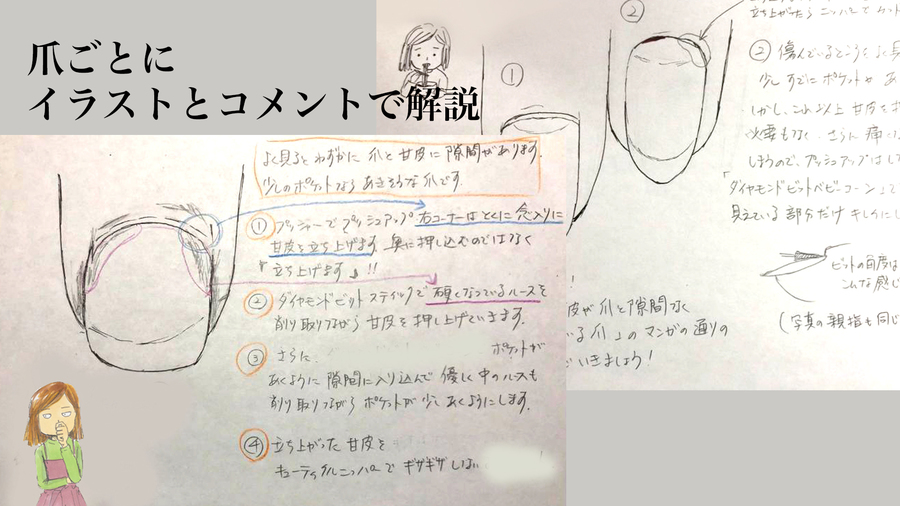 爪ごとに
イラストとコメントで解説
よく見ると わずかに 爪と甘皮に 隙間があります。
少しのポケットなら あきそうな爪です。
① プッシャーで プッシュアップ 右コーナーはとくに 念入りに
甘皮を立ち上げます 奥に押し込むのではなく
『立ち上げます』!!
② ダイヤモンドビット スティックで 硬くなっているルースを
削り取りながら 甘皮を 押し上げていきます。
③ さらに
ポケットが
あくように 隙間に入り込んで 優しく 中のルースも
削り取りながら ポケットが 少し あくようにします。
④ 立ち上がった 甘皮を
キューティクルニッパーで ギザギザ しない
①
②
立ち上がったら ニッパーで
② 傷んでいるところを よく見
少しすでに ポケットが あ
しかし、これ以上 甘皮を
必要もなく、さらに 痛
しまうので、プッシュアップは
「ダイヤモンドビットベビーコーン」で
見えている部分だけ キレイにし
ビットの角度は
こんな感じ
(写真の親指も同じ
皮が 爪と隙間なく
いる爪」の マンガの通りの
いきましょう!